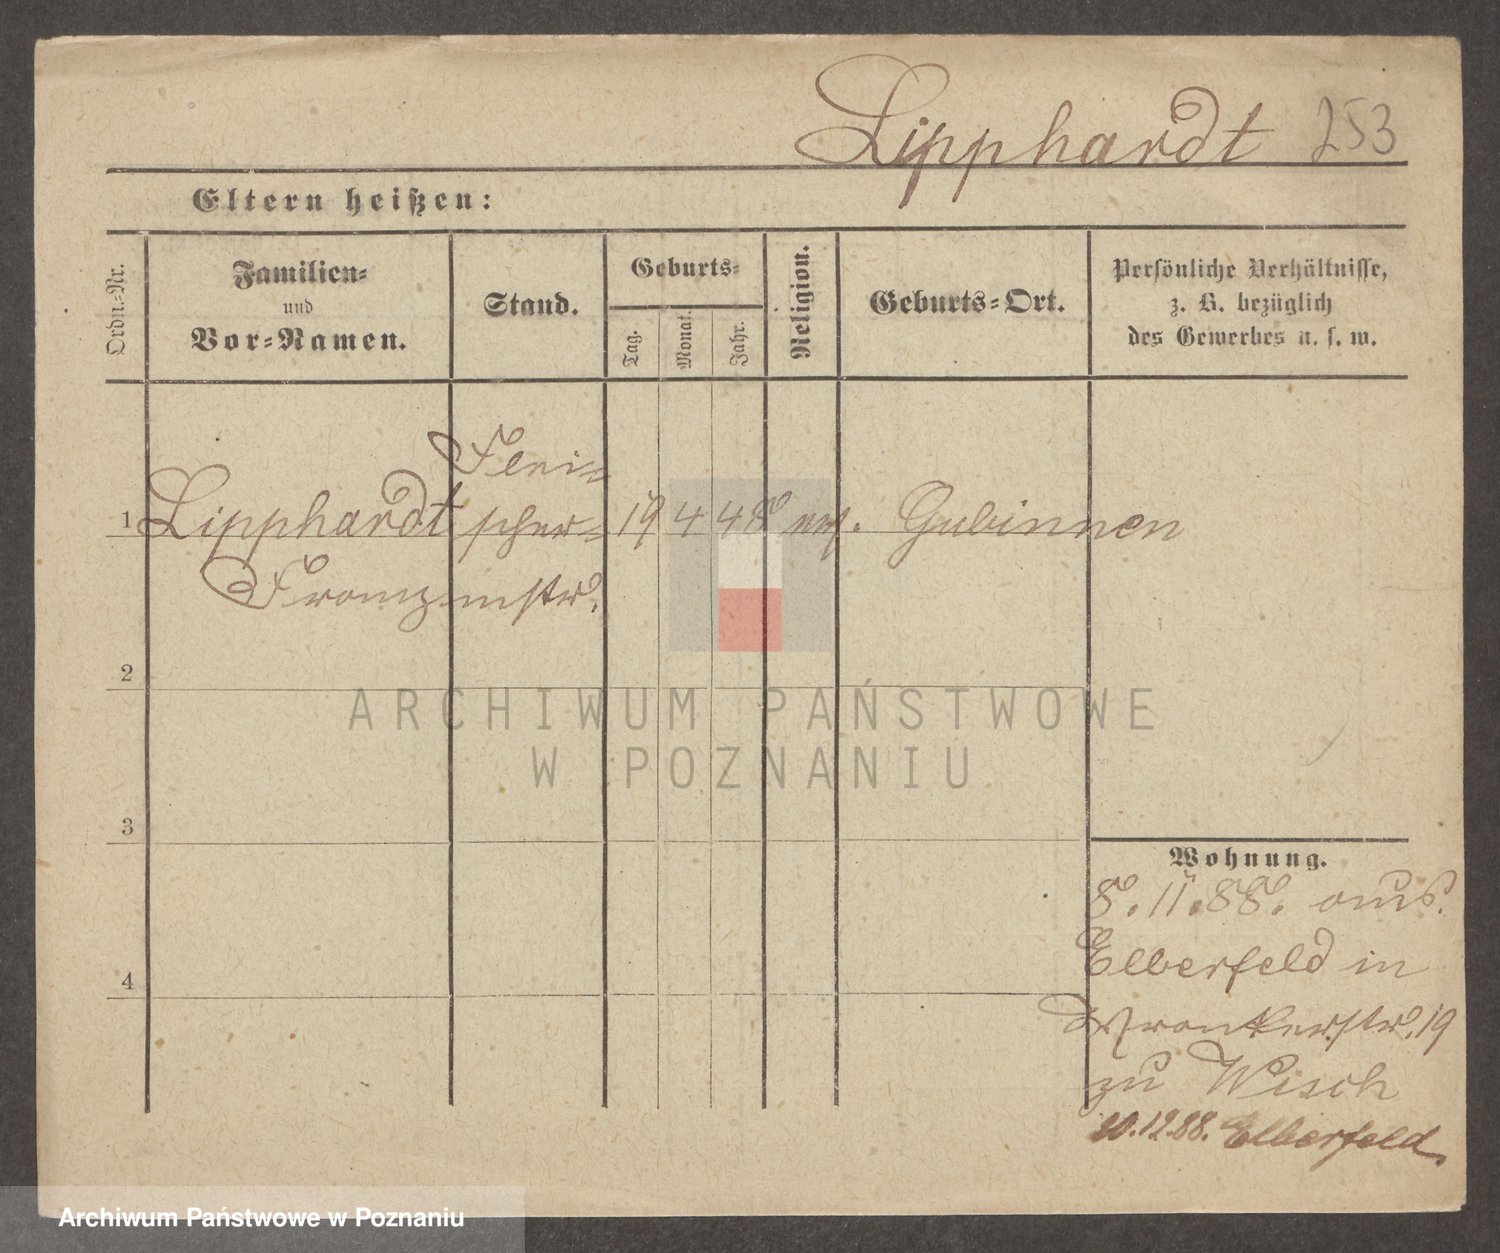 Lipphardt 253
Eltern heißen:
Ordn.-Nr.
Familien-
und
Vor-Namen.
Stand.
Geburts-
Tag.
Monat.
Jahr.
Religion.
Geburts-Ort.
Persönliche Verhältnisse,
z. B. bezüglich
des Gewerbes u. s. w.
Flei-
1 Lipphardt scher- 19 4 48 ev. Gubinnen
Franz mstr.
2
3
4
Wohnung.
8. 11. 88. aus
Elberfeld in
Wronkerstr. 19
zu Wisch
20.12.88. Elberfeld
ARCHIWUM PAŃSTWOWE
W POZNANIU
Archiwum Państwowe w Poznaniu